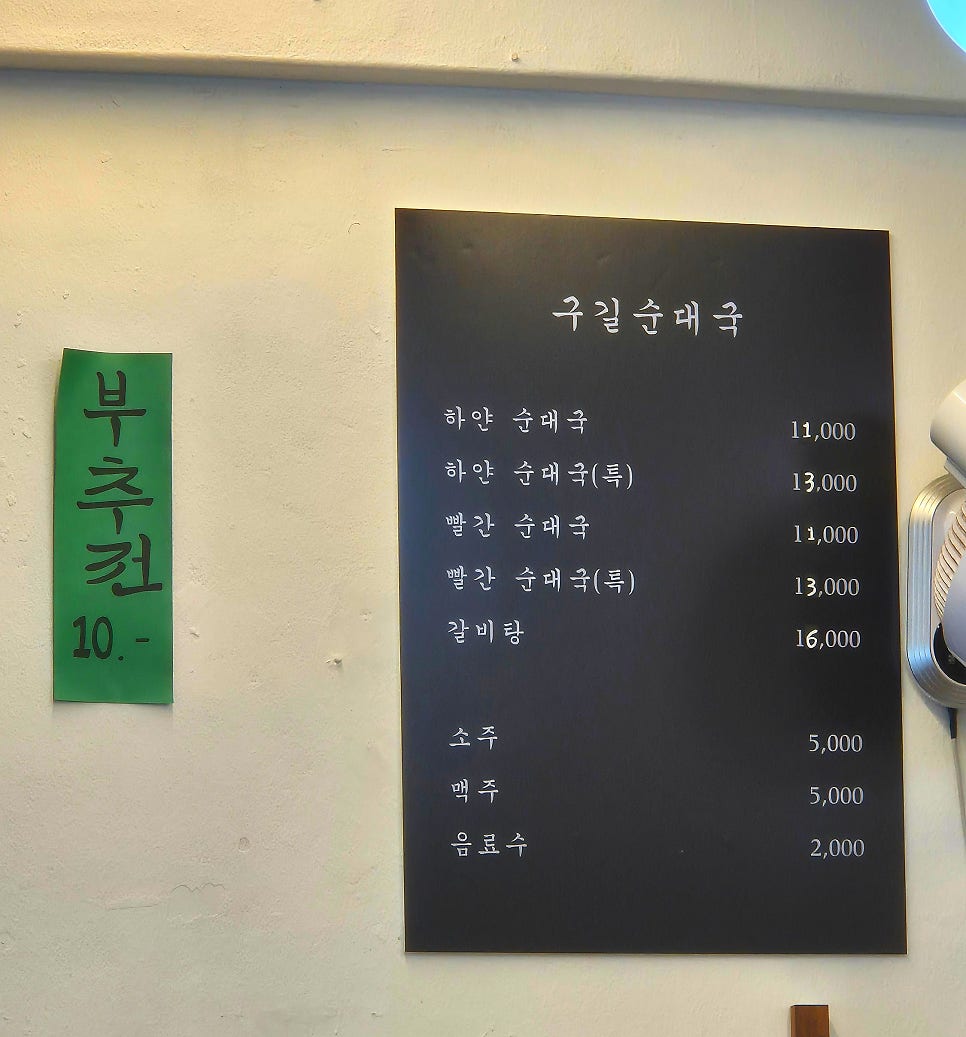 부추전
10.-
구길순대국
하얀 순대국 11,000
하얀 순대국(특) 13,000
빨간 순대국 11,000
빨간 순대국(특) 13,000
갈비탕 16,000
소주 5,000
맥주 5,000
음료수 2,000